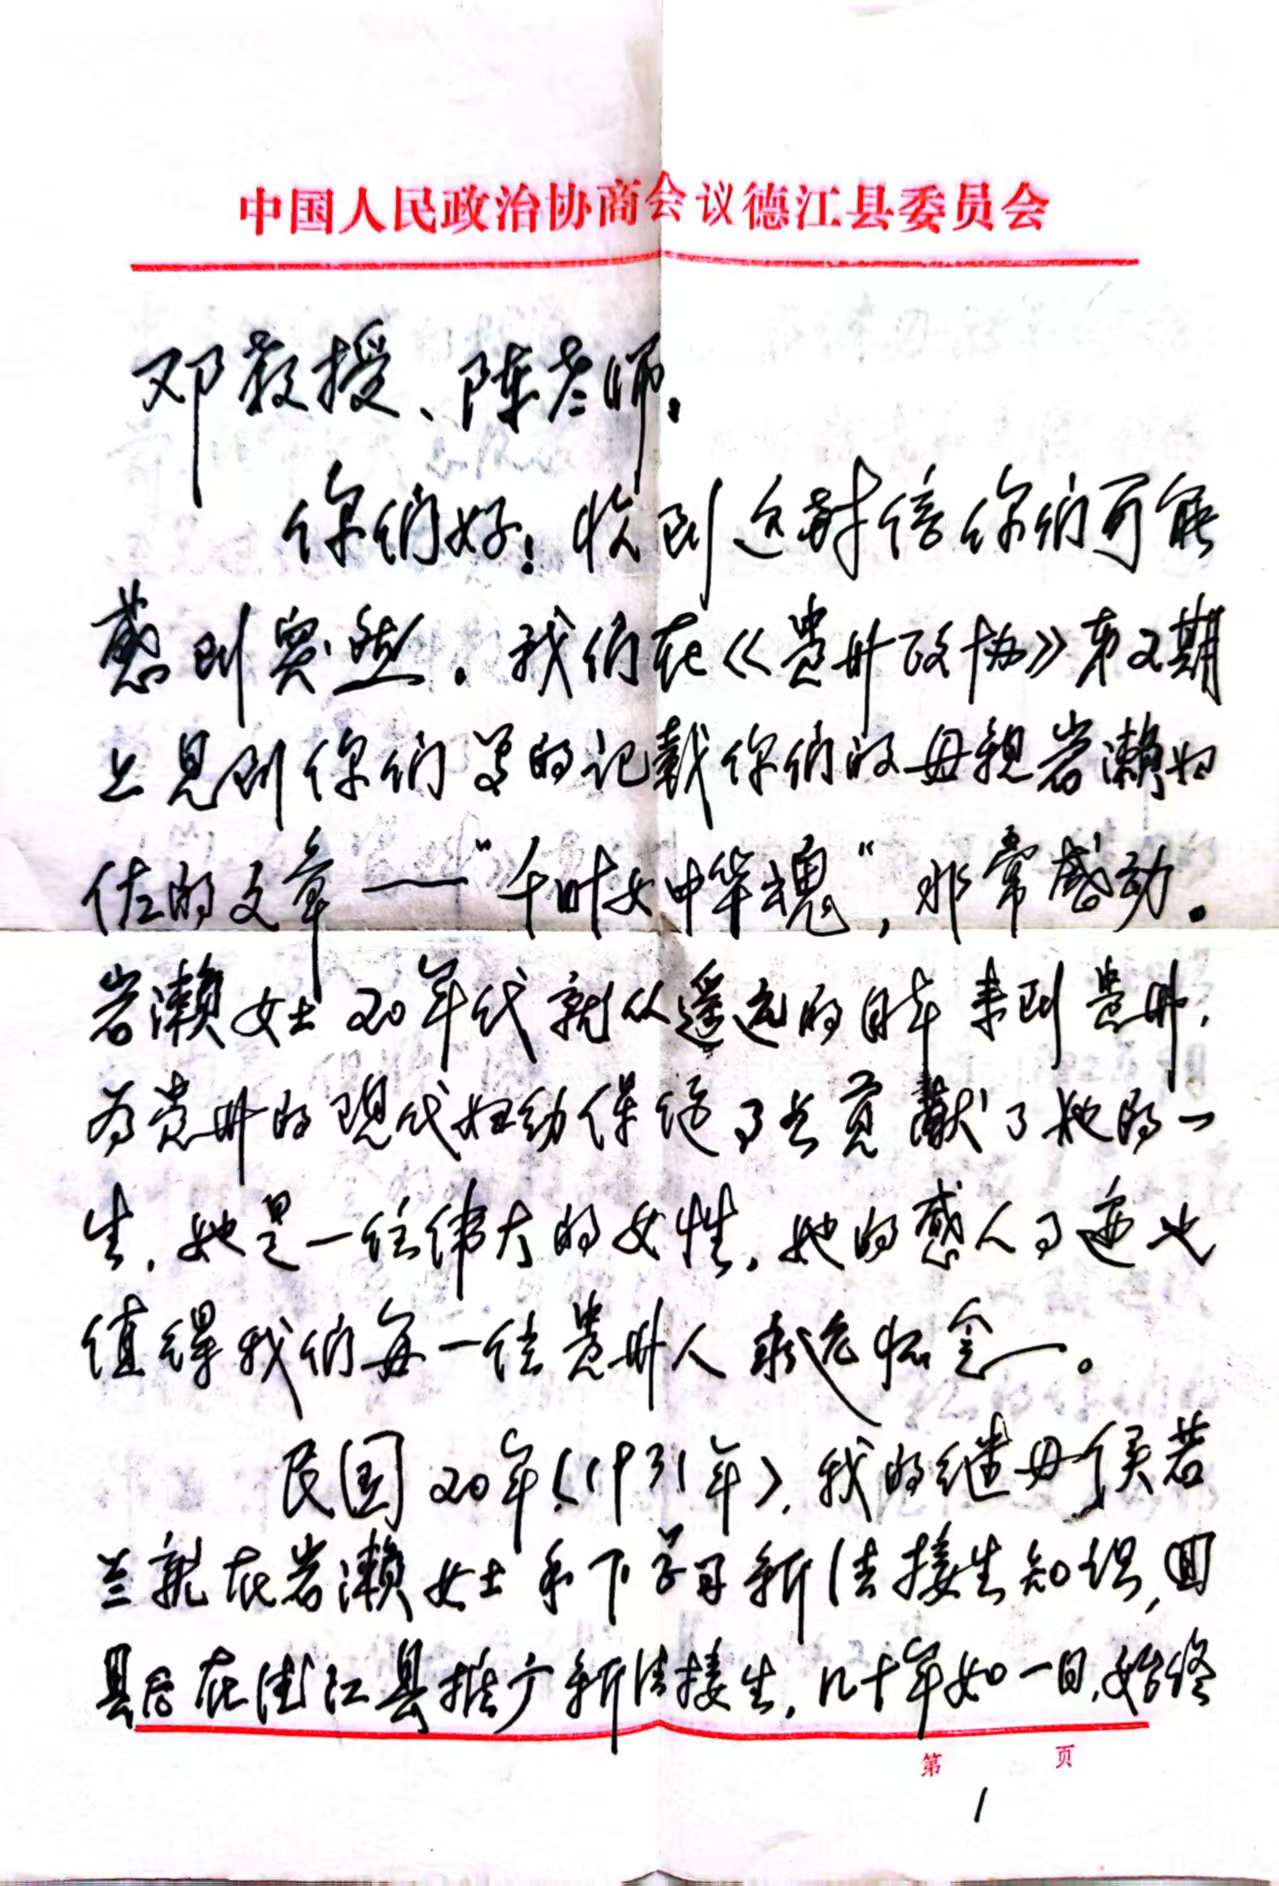 中国人民政治协商会议德江县委员会
邓教授、陈老师:
你们好!收到这封信你们可能
感到突然。我们在《贵州政协》第2期
上见到你们写的记载你们的母亲岩濑妇
佐的文章——“千叶女中华魂”,非常感动。
岩濑女士20年代就从遥远的日本来到贵州,
为贵州的现代妇幼保健事业贡献了她的一
生,她是一位伟大的女性,她的感人事迹也
值得我们每一位贵州人永远怀念。
民国20年(1931年),我的继母侯若
兰就在岩濑女士手下学习新法接生知识,回
县后在德江县推广新法接生,几十年如一日,始终
第 页
1